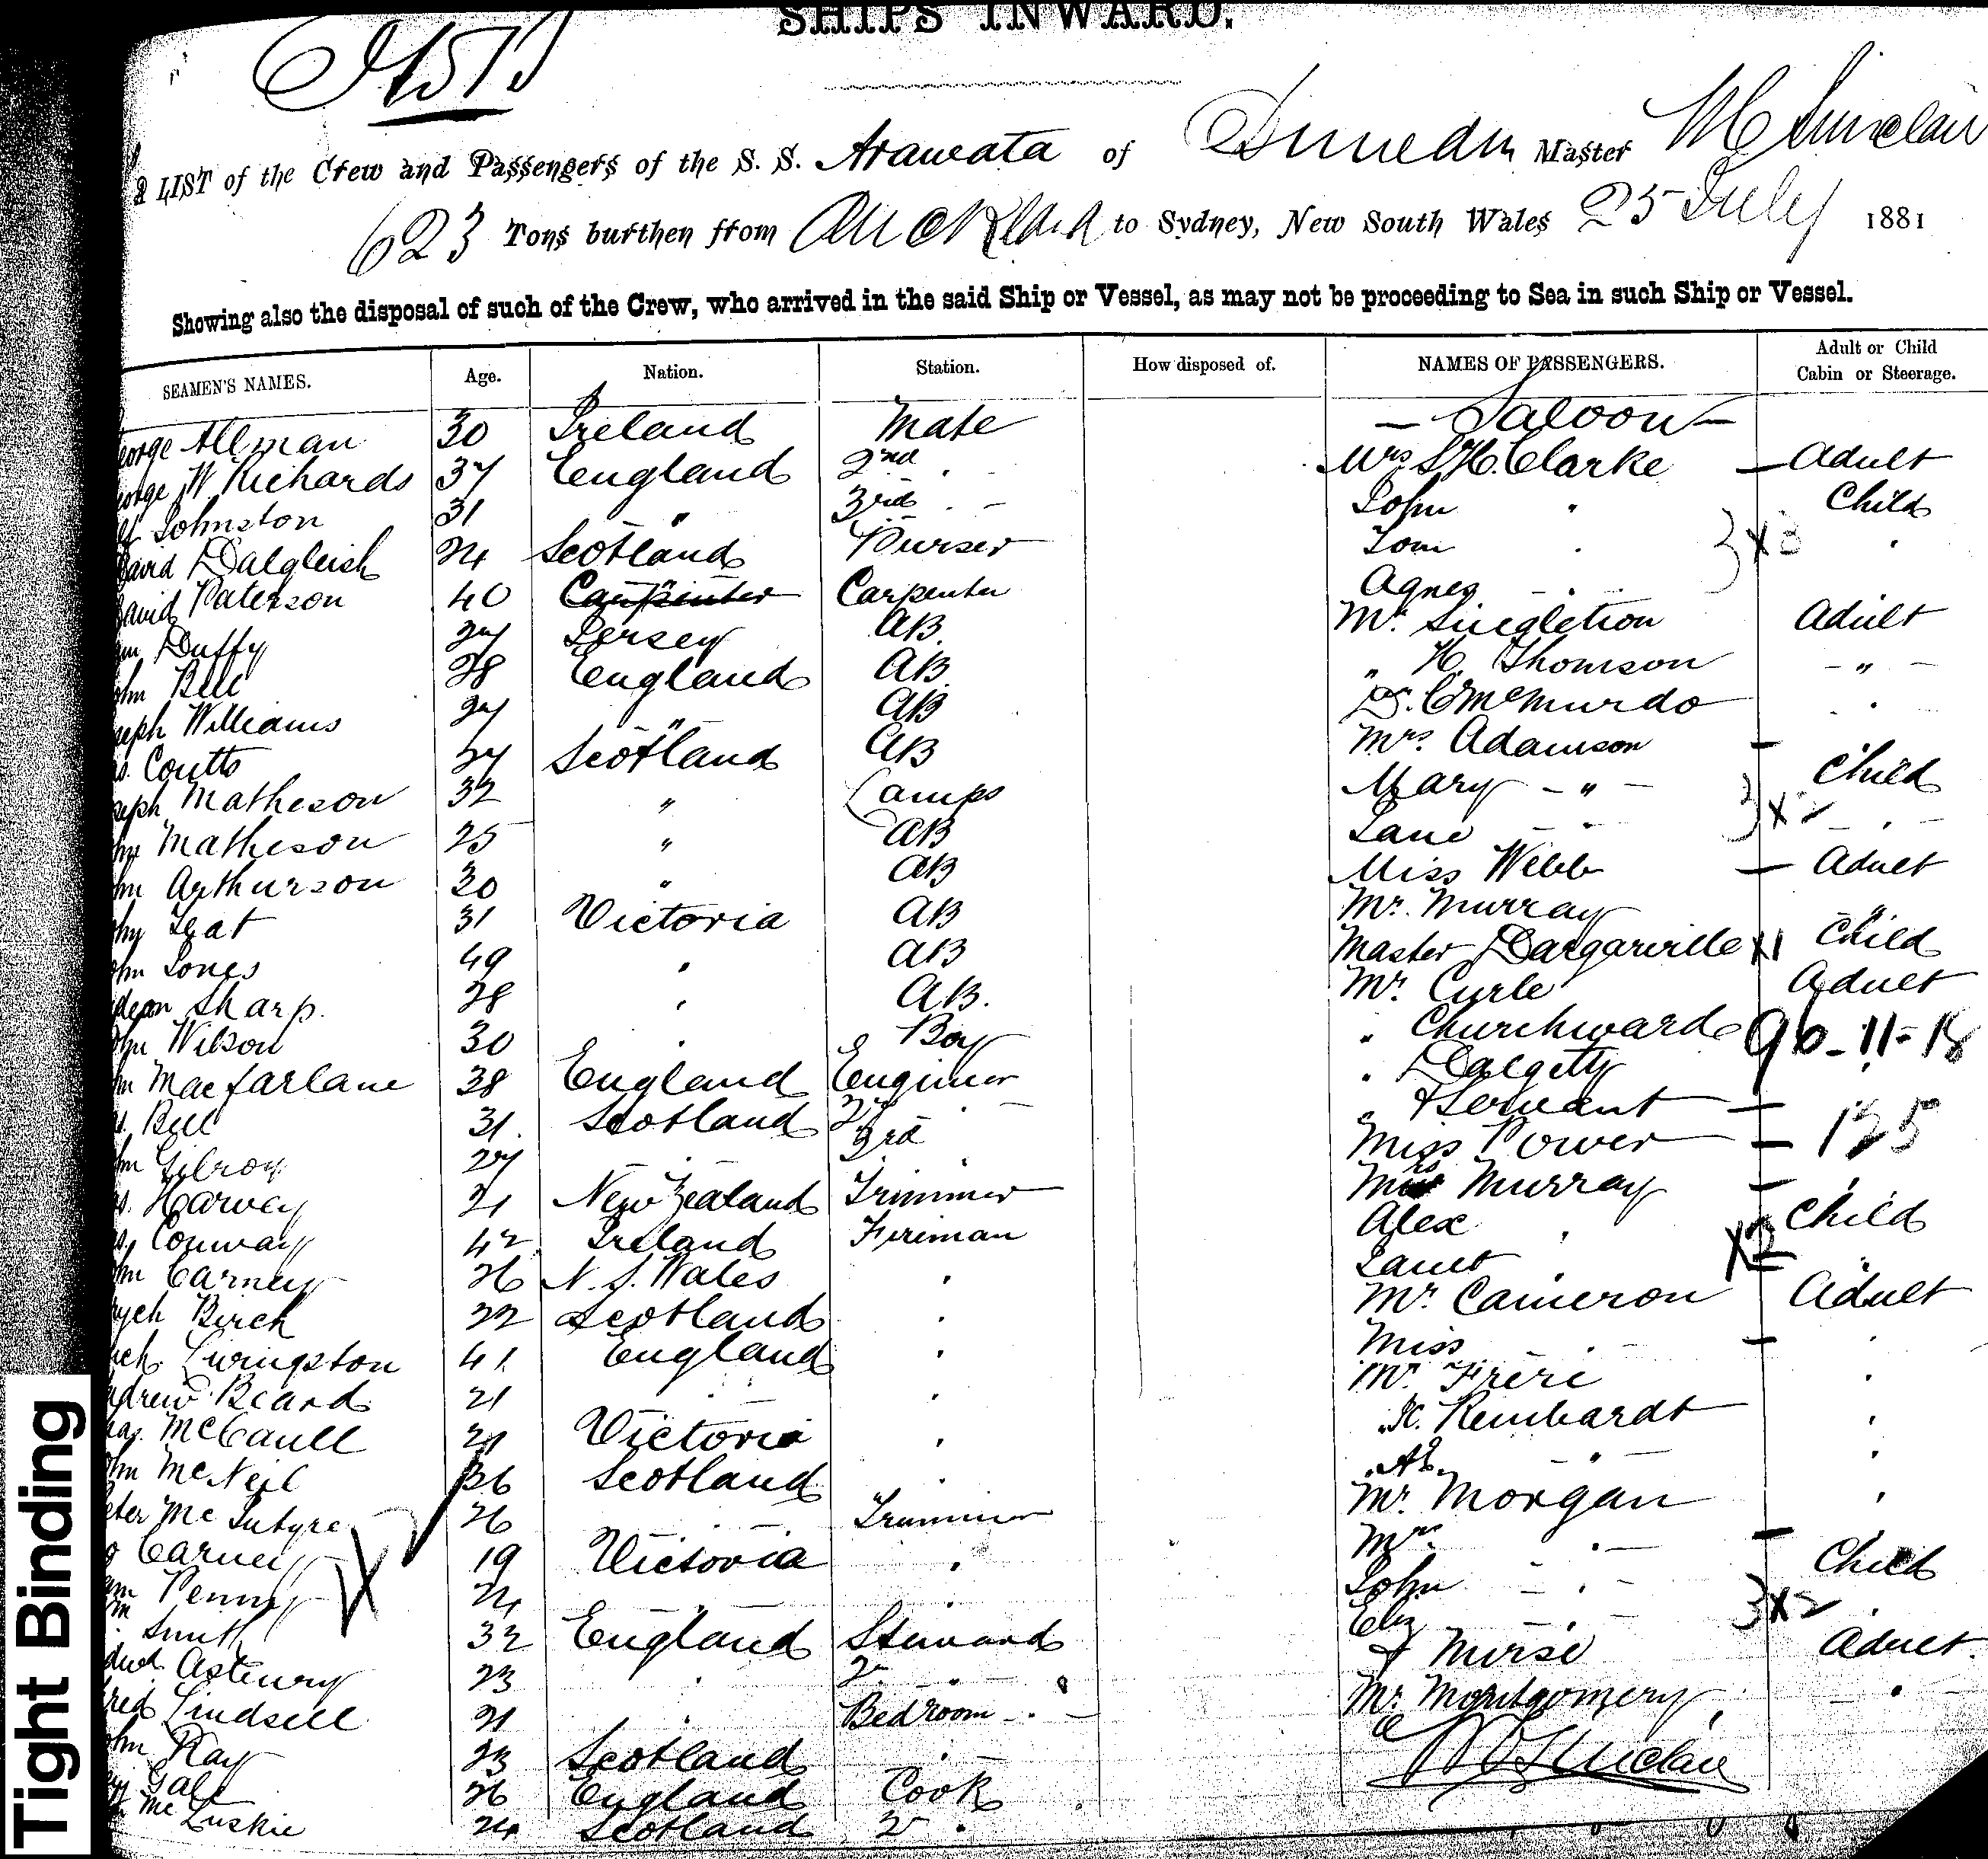 SHIPS INWARD.
A LIST of the Crew and Passengers of the S. S. Arawata of Dunedin Master M Sinclair
623 Tons burthen from Auckland to Sydney, New South Wales 25 July 1881
Showing also the disposal of such of the Crew, who arrived in the said Ship or Vessel, as may not be proceeding to Sea in such Ship or Vessel.
SEAMEN'S NAMES. Age. Nation. Station. How disposed of. NAMES OF PASSENGERS. Adult or Child Cabin or Steerage.
— Saloon —
eorge Allman 30 Ireland Mate
eorge W Richards 37 England 2nd " Mrs S H. Clarke — Adult
Johnston 31 " 3rd " — John " Child
avid Dalgleish 24 Scotland Purser Tom " 3 x 3 "
avid Paterson 40 " Carpenter Agnes "
m Duffy 27 Jersey AB. Mr. Singletion Adult
ohn Bell 28 England AB. " H. Thomson — " —
seph Williams 27 " AB Dr. C McMurdo "
s. Coutts 27 Scotland AB Mrs. Adamson —
seph Matheson 32 " Lamps Mary — " — Child
Matheson 25 " AB Jane — " 3 x 2 — " —
m Arthurson 30 " AB Miss Webb — Adult
hn Leat 31 Victoria AB Mr. Murray "
ohn Jones 49 " AB Master Dargaville x1 Child
deon Sharp. 28 " AB. Mr. Curle Adult
ohn Wilson 30 " Boy " Churchward 96-11-18
m Macfarlane 38 England Engineer " Dalgetty
s. Bell 31. Scotland 2d " — " & Servant —
m Gilroy 27 " 3rd " Miss Power — 125
s. Harvey 21 New Zealand Trimmer Mrs Murray —
s. Conway 42 Ireland Fireman Alex " Child
m Carney 26 N. S. Wales " Janet " x2 "
Birch 22 Scotland " Mr Cameron Adult
ch. Livingston 41 England " Miss " — "
ndrew Beard 21 " " Mr. Frere "
has. McCaull 21 Victoria " " K. Reinhardt "
ohn McNeil 36 Scotland " " "
eter McIntyre 26 " Trimmer Mr. Morgan "
Carney 19 Victoria " Mrs " —
m Penny 21 " " John — " — Child
Smith 32 England Steward Eliz — " — 3x2 "
Astbury 23 " 2 " & Nurse Adult.
red Lindsell 21 " Bedroom " — Mr. Montgomery — " —
ohn Ray 23 Scotland "
Gale 26 England Cook
McLuskie 24 Scotland 2 "
M Sinclair
Tight Binding